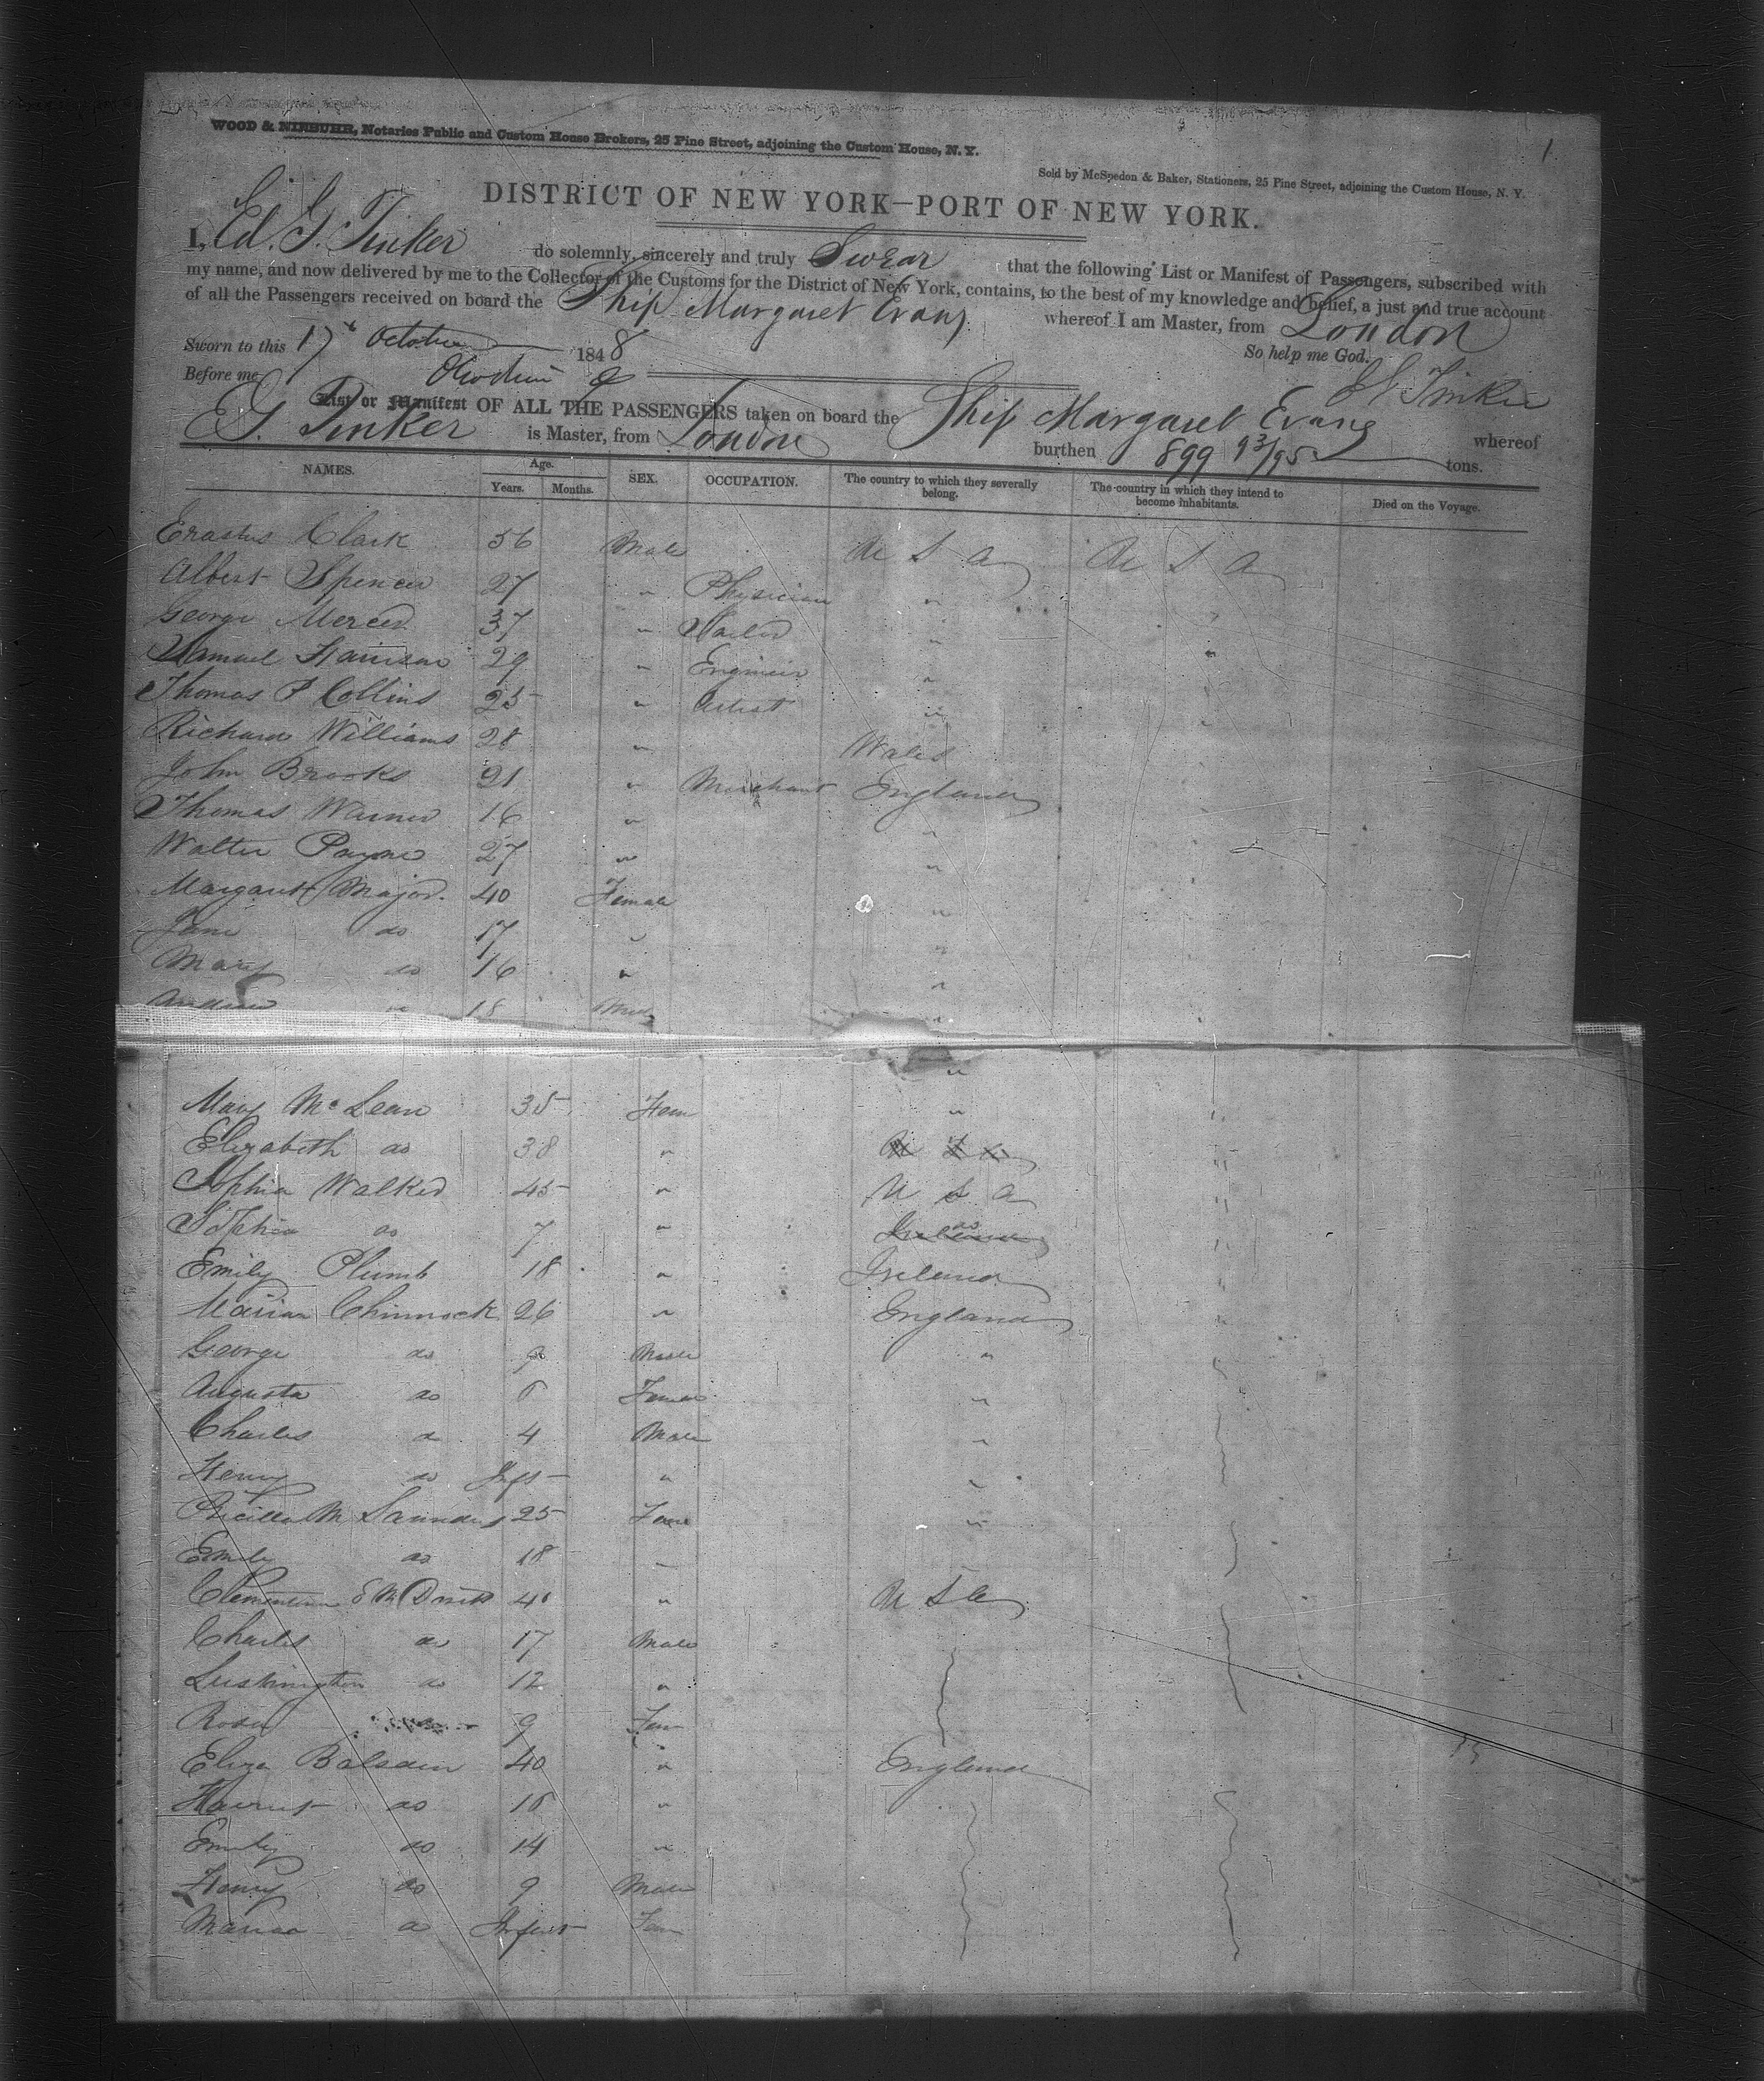 1
WOOD & NIEBUHR, Notaries Public and Custom House Brokers, 25 Pine Street, adjoining the Custom House, N. Y.
Sold by McSpedon & Baker, Stationers, 25 Pine Street, adjoining the Custom House, N. Y.
DISTRICT OF NEW YORK—PORT OF NEW YORK.
I, Ed. G. Tinker do solemnly, sincerely and truly Swear that the following List or Manifest of Passengers, subscribed with
my name, and now delivered by me to the Collector of the Customs for the District of New York, contains, to the best of my knowledge and belief, a just and true account
of all the Passengers received on board the Ship Margaret Evans whereof I am Master, from London
Sworn to this 17th October 1848 So help me God.
Before me E G Tinker
List or Manifest OF ALL THE PASSENGERS taken on board the Ship Margaret Evans whereof
E G. Tinker is Master, from London burthen 899 93/95 tons.
NAMES. Age. Years. Months. SEX. OCCUPATION. The country to which they severally belong. The country in which they intend to become inhabitants. Died on the Voyage.
Erastus Clark 56 Male U S A U S A
Albert Spencer 27 " Physician " "
George Mercer 37 " " "
Samuel Harrison 29 " Engineer " "
Thomas P Collins 25 " Artist " "
Richard Williams 28 " Wales "
John Brooks 21 " Merchant England "
Thomas Warner 16 " " "
Walter Payne 27 " " "
Margaret Major. 40 Female " "
Jane do 17 " " "
Mary do 16 " " "
Andrew do 18 Male " "
"
Mary McLean 35 Fem " "
Elizabeth do 38 " U S A "
Sophia Walker 45 " U S A "
Sophia do 7 " Ireland do "
Emily Plumb 18 " Ireland "
Marian Chinnock 26 " England "
George do 9 Male "
Augusta do 6 Female "
Charles do 4 Male "
Henry do Inft "
Pricilla M Saunders 25 Fem "
Emily do 18 "
Clementina E M 40 " U S A
Charles do 17 Male
Lushington do 12 "
Rosa do 9 Fem
Eliza Balsden 40 " England
Harriet do 16 "
Emily do 14 "
Henry do 9 Male
Maria do Infant Fem